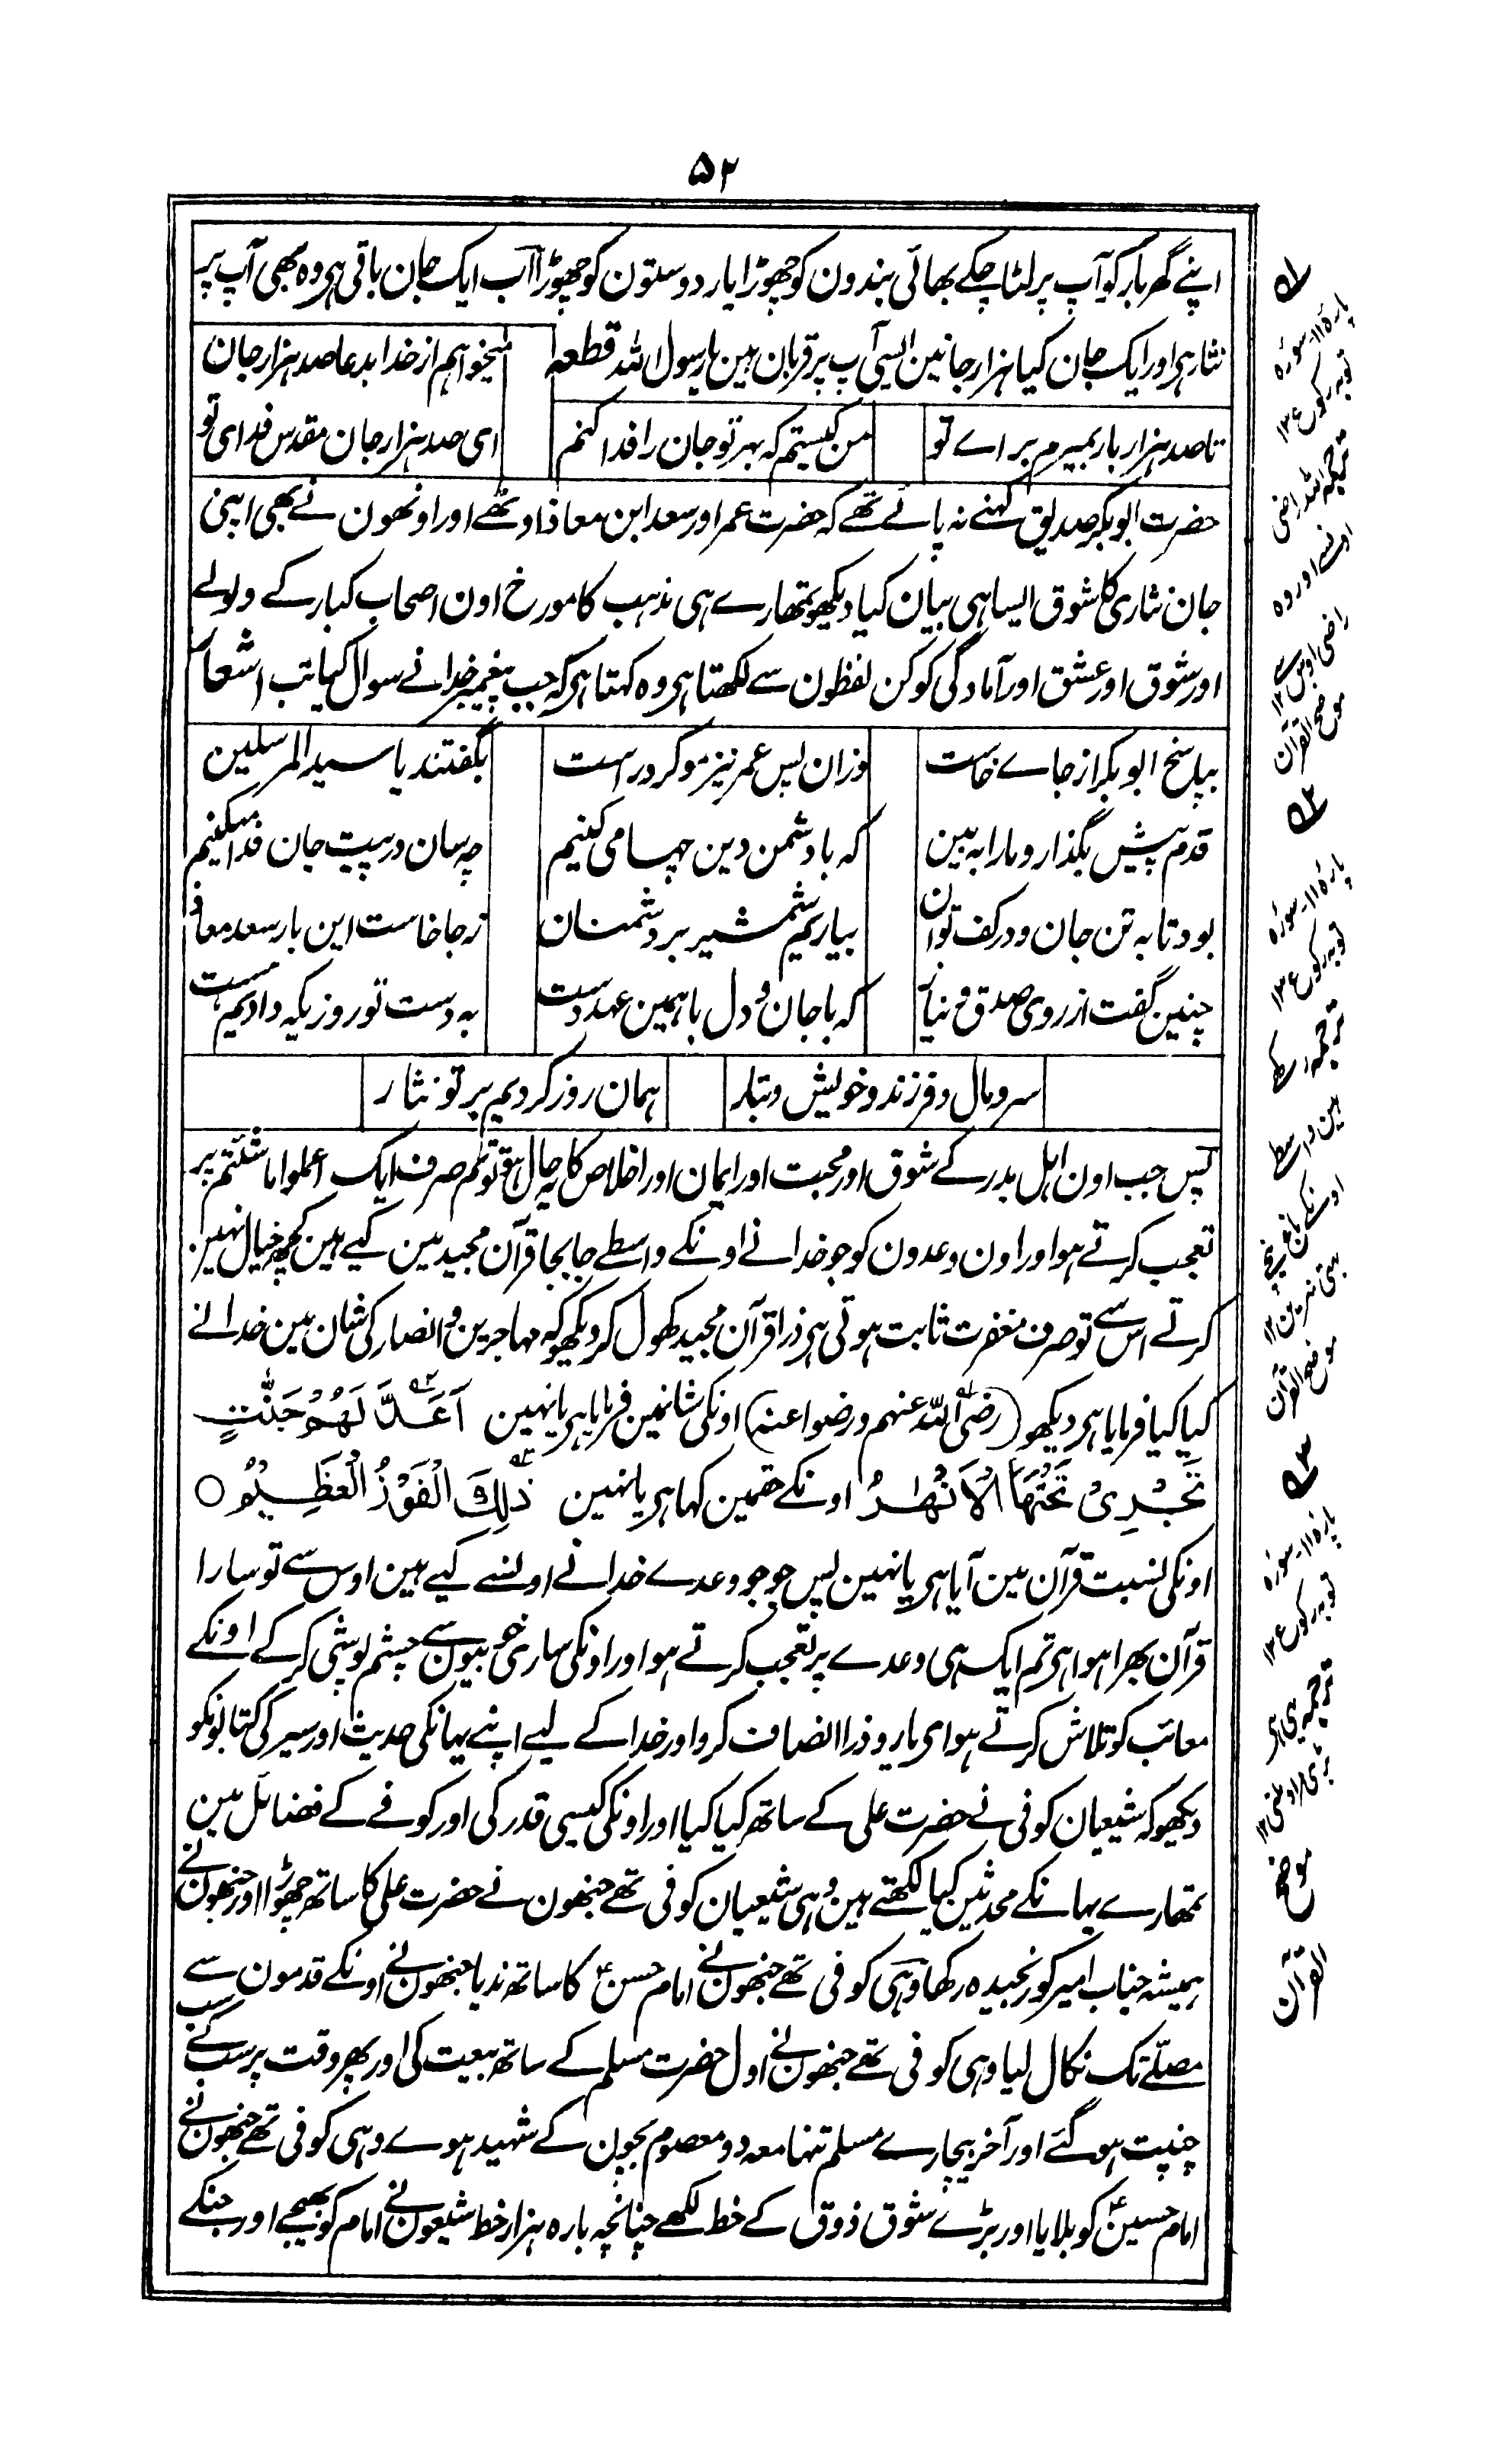 ۵۲
اپنے گھر بار کو آپ پر لٹا چکے بھائی بندون کو چھوڑا یار دوستون کو چھوڑا اب ایک جان باقی ہی وہ بھی آپ پر
نثار ہی اور ایک جان کیا ہزار جانین ایسی آپ پر قربان ہین یا رسول اللہ قطعہ میخواہم از خدا بدعا صد ہزار جان
تا صد ہزار بار بمیرم براے تو من کیستم کہ بہر تو جان را فدا کنم ای صد ہزار جان مقدس فدای تو
حضرت ابوبکر صدیق کہنے نہ پائے تھے کہ حضرت عمر اور سعد ابن معاذ اوٹھے اور اونھون نے بھی اپنی
جان نثاری کا شوق ایسا ہی بیان کیا دیکھو تمھارے ہی مذہب کا مورخ اون اصحاب کبار کے ولولے
اور شوق اور عشق اور آمادگی کو کن لفظون سے لکھتا ہی وہ کہتا ہی کہ جب پیغمبر خدا نے سوال کیا تب اشعار
بپاسخ ابوبکر از جاے خاست وزان پس عمر نیز مو کرد راست بگفتند یا سید المرسلین
قدم پیش بگذار و مارا بہ بین کہ با دشمن دین چہا می کنیم چہ سان در پیت جان فدا میکنیم
بود تا بہ تن جان و در کف توان بیاریم شمشیر بر دشمنان ز جا خاست این بار سعد معاذ
چنین گفت از روی صدق و نیاز کہ با جان و دل با ہمین عہد دست بہ دست تو روزیکہ دادیم ہست
سر و مال و فرزند و خویش و تبار ہمان روز کردیم بر تو نثار
پس جب اون اہل بدر کے شوق اور محبت اور ایمان اور اخلاص کا یہ حال ہو تو تم صرف ایک اعملوا ما شئتم پر
تعجب کرتے ہو اور اون وعدون کو جو خدا نے اونکے واسطے جا بجا قرآن مجید مین کیے ہین کچھ خیال نہین
کرتے اس سے تو صرف مغفرت ثابت ہوتی ہی ذرا قرآن مجید کھول کر دیکھو کہ مہاجرین و انصار کی شان مین خدا نے
کیا کیا فرمایا ہی دیکھو (رضی اللہ عنہم ورضوا عنہ) اونکی شانمین فرمایا ہی یا نہین اَعَدَّ لَهُمْ جَنّٰتٍ
تَجْرِیْ تَحْتَهَا الْاَنْهٰرُ اونکے حقمین کہا ہی یا نہین ذٰلِكَ الْفَوْزُ الْعَظِیْمُ ○
اونکی نسبت قرآن مین آیا ہی یا نہین پس جو جو وعدے خدا نے اونسے کیے ہین اوس سے تو سارا
قرآن بھرا ہوا ہی تم ایک ہی وعدے پر تعجب کرتے ہو اور اونکی ساری خوبیون سے چشم پوشی کر کے اونکے
معائب کو تلاش کرتے ہو ای یارو ذرا انصاف کرو اور خدا کے لیے اپنے یہانکی حدیث اور سیر کی کتابونکو
دیکھو کہ شیعیان کوفی نے حضرت علی کے ساتھ کیا کیا اور اونکی کیسی قدر کی اور کوفے کے فضائل مین
تمھارے یہانکے محدثین کیا لکھتے ہین وہی شیعیان کوفی تھے جنھون نے حضرت علی کا ساتھ چھوڑا اور جنھون نے
ہمیشہ جناب امیر کو رنجیدہ رکھا وہی کوفی تھے جنھون نے امام حسنؑ کا ساتھ ندیا جنھون نے اونکے قدمون سے
مصلّے تک نکال لیا وہی کوفی تھے جنھون نے اول حضرت مسلم کے ساتھ بیعت کی اور پھر وقت پر سب کے سب
چنپت ہو گئے اور آخر بیچارے مسلم تنہا معہ دو معصوم بچون کے شہید ہوے وہی کوفی تھے جنھون نے
امام حسینؑ کو بلایا اور بڑے شوق ذوق کے خط لکھے چنانچہ بارہ ہزار خط شیعون نے امام کو بھیجے اور جنکے
۱؎
پارہ ۱۱۔ سورۂ
توبہ رکوع ۱۳
ترجمہ اللہ راضی
اونسے اور وہ
راضی اوس سے ۱۲
موضح القرآن
۲؎
پارہ ۱۱۔ سورۂ
توبہ رکوع ۱۳
ترجمہ رکھے
ہین واسطے
اونکے باغ نیچے
بہتی نہرین ۱۲
موضح القرآن
۳؎
پارہ ۱۱۔ سورۂ
توبہ رکوع ۱۳
ترجمہ یہی ہی
بڑی مراد ملنی ۱۲
موضح
القرآن